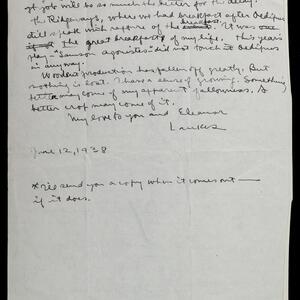 job will be so much the better for the delay.
the Ridgeways, where we had breakfast after Oedipus
did speak with rapture of the breakfast. It was
the great breakfast of my life. This year's
play - "Samson Agonistes" did not touch Oedipus
in any way.
Wooden production has fallen off greatly. But
nothing is lost. I have a sense of growing. Something
may come of my apparent fallowness. A
better crop may come of it.
My love to you and Eleanor
June 12, 1938
send you a copy when it comes out —
if it does.